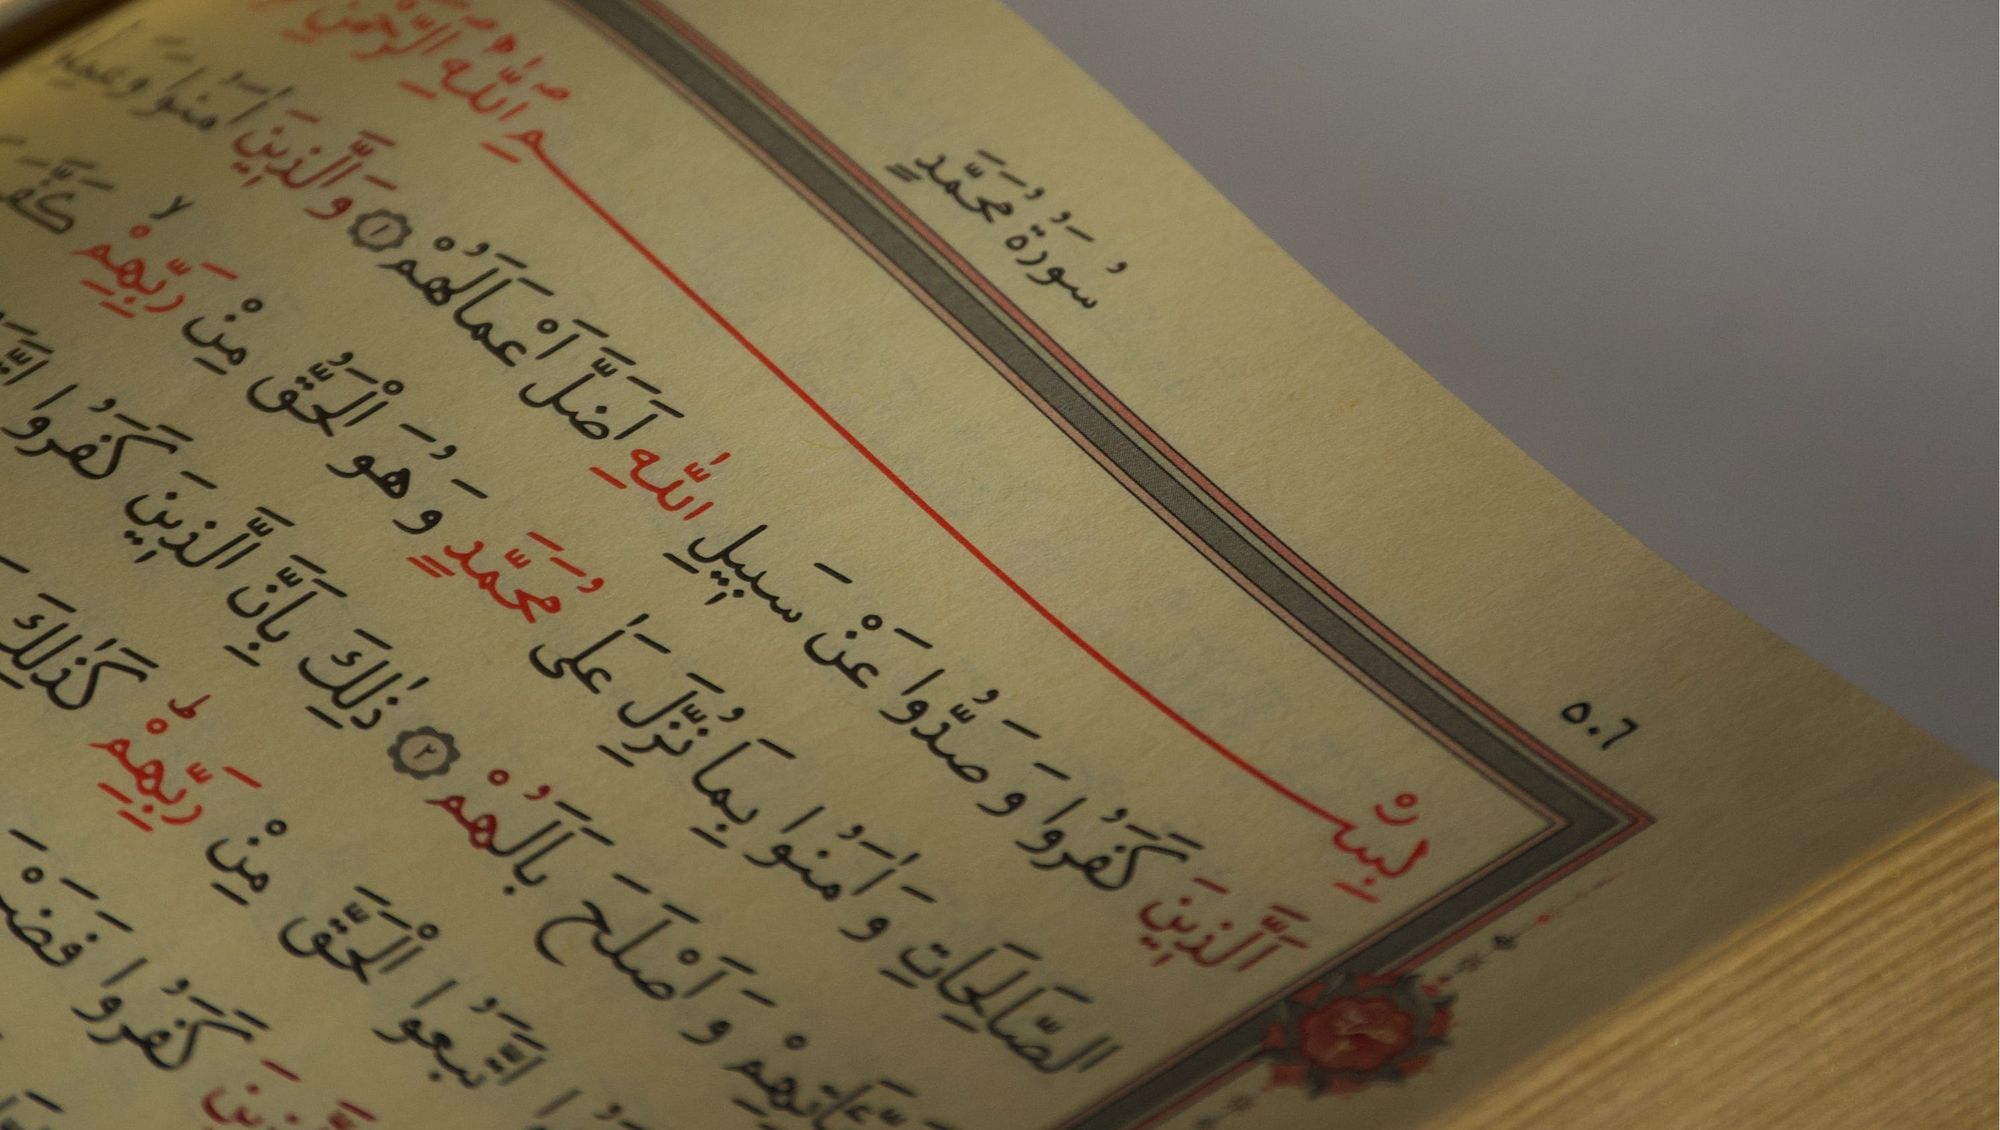 سُورَةُ مُحَمَّدٍ
٥٠٦
بِسْمِ اللّٰهِ الرَّحْمٰنِ
اَلَّذ۪ينَ كَفَرُوا وَصَدُّوا عَنْ سَب۪يلِ اللّٰهِ اَضَلَّ اَعْمَالَهُمْ ﴿١﴾ وَالَّذ۪ينَ اٰمَنُوا وَعَمِلُوا
الصَّالِحَاتِ وَاٰمَنُوا بِمَا نُزِّلَ عَلٰى مُحَمَّدٍ وَهُوَ الْحَقُّ مِنْ رَبِّهِمْۙ كَفَّرَ
سَيِّـَٔاتِهِمْ وَاَصْلَحَ بَالَهُمْ ﴿٢﴾ ذٰلِكَ بِاَنَّ الَّذ۪ينَ كَفَرُوا
اتَّبَعُوا الْحَقَّ مِنْ رَبِّهِمْۜ كَذٰلِكَ
كَفَرُوا فَضَرْبَ